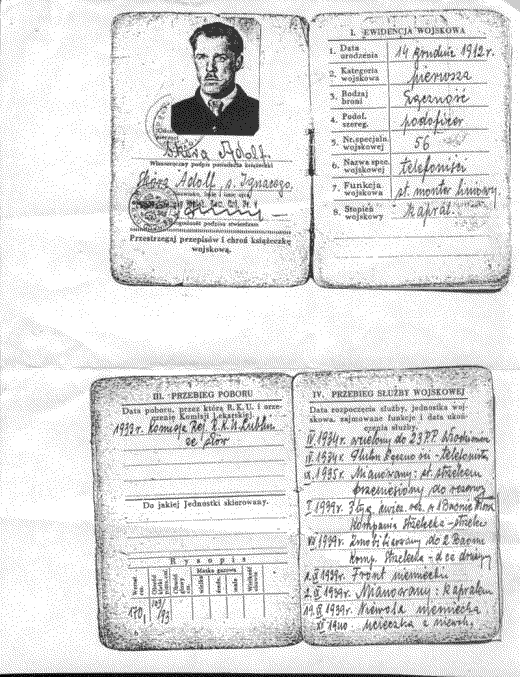 Skóra Adolf
Własnoręczny podpis posiadacza książeczki
Skóra Adolf, s. Ignacego.
podpisu stwierdzam
Przestrzegaj przepisów i chroń książeczkę
wojskową.
I. EWIDENCJA WOJSKOWA
1. Data urodzenia 14 grudnia 1912 r.
2. Kategoria wojskowa pierwsza
3. Rodzaj broni Łączność
4. Podof. szereg. podoficer
5. Nr. specjaln. wojskowej 56
6. Nazwa spec. wojskowej telefonista
7. Funkcja wojskowa st. monter liniowy
8. Stopień wojskowy Kapral.
III. PRZEBIEG POBORU
Data poboru, przez którą R. K. U. i orze-
czenie Komisji Lekarskiej
1933 r. Komisja Rej. R.K.U. Lublin
Do jakiej Jednostki skierowany.
Rysopis
Wzrost cm.
Maska gazowa
wielka
średn.
mała
170,
6
IV. PRZEBIEG SŁUŻBY WOJSKOWEJ
Data rozpoczęcia służby, jednostka woj-
skowa, zajmowane funkcje i data ukoń-
czenia służby.
IV 1934r. wcielony do 23 P.P.
IV 1934r. Pluton Łączności - telefonista
IX 1935r. Mianowany: st. strzelcem
przeniesiony do rezerwy
I 1939r.
Kompania strzelecka - strzelec
VIII 1939r. Zmobilizowany do 2 Baonu
Komp. Strzelecka - d-ca drużyny
1.IX 1939r. Front niemiecki
2.IX 1939r. Mianowany: Kapralem
19.IX 1939r. Niewola niemiecka
XI 1940. ucieczka z niewoli.